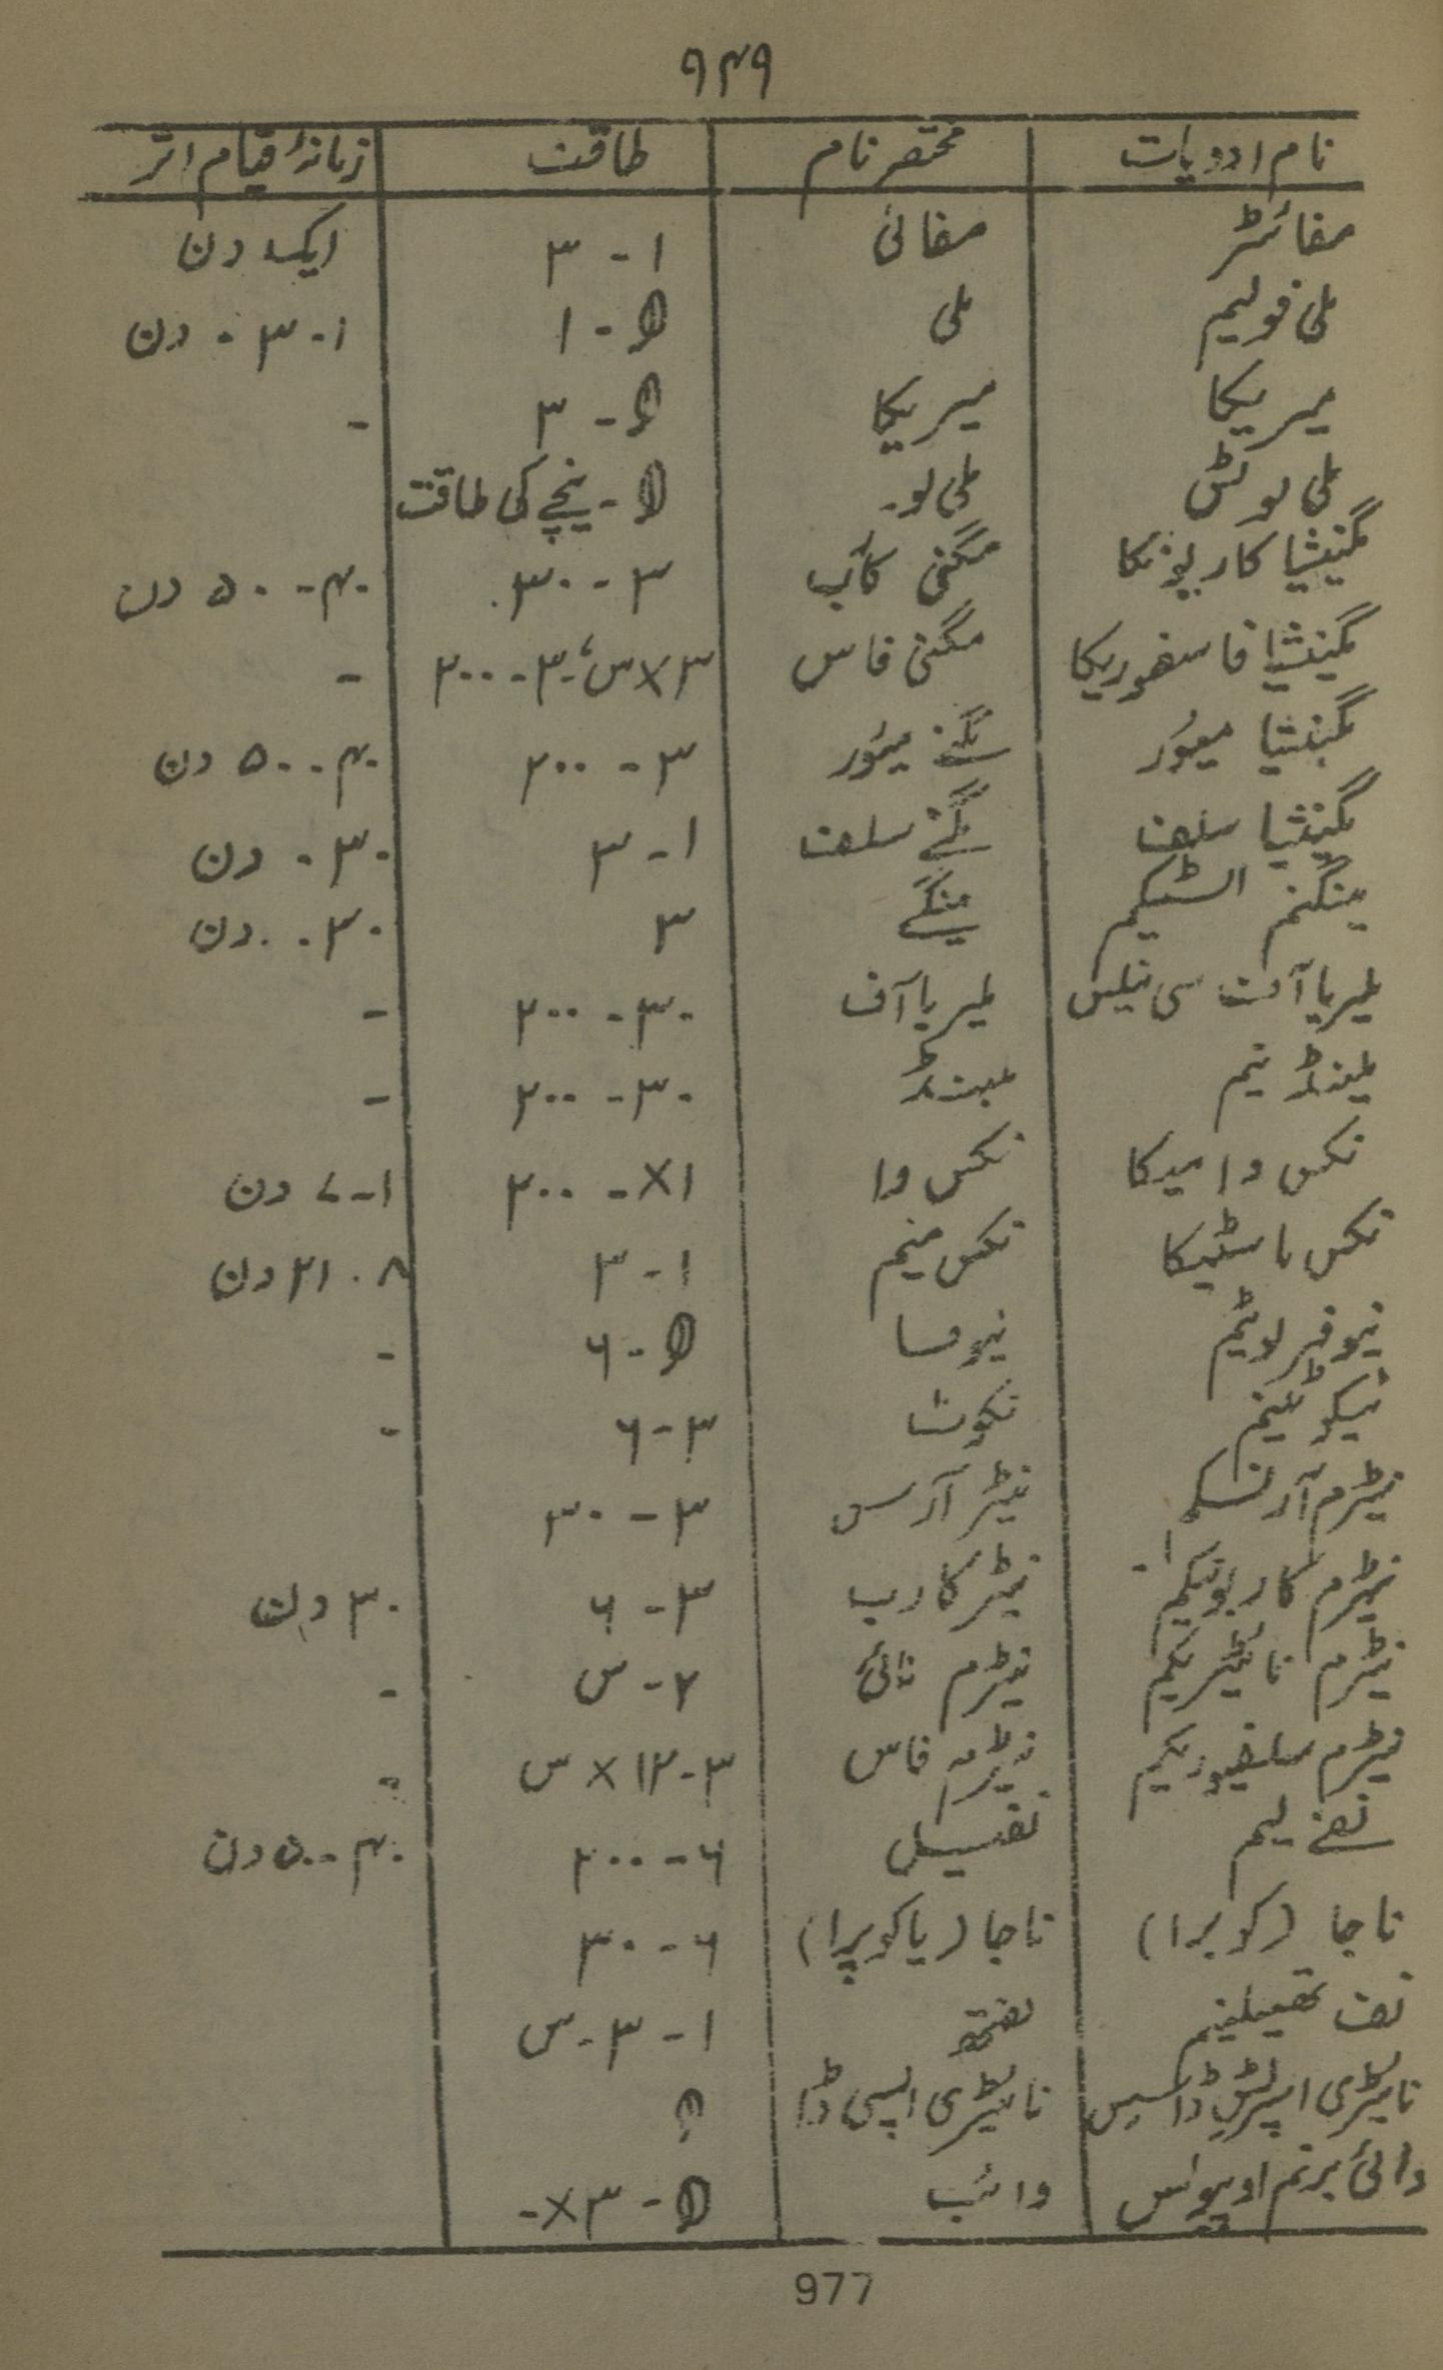 ۹۴۹
نام ادویات مختصر نام طاقت زمانۂ قیام اثر
مفائٹز مفائی ۱ - ۳ ایک دن
ملی فولیم ملی θ - ۱ ۱ - ۳ - دن
میریکا میریکا θ - ۳ -
ملی لوٹس ملی لو۔ θ - نیچے کی طاقت
مگنیشیا کاربونکا مگنی کاب ۳ - ۳۰ ۴۰ - ۵۰ دن
مگنیشیا فاسفوریکا مگنی فاس ۳×س، ۳۰ - ۲۰۰ -
مگنیشیا میور مگنے میور ۳ - ۲۰۰ ۴۰ - ۵۰ دن
مگنیشیا سلف مگنے سلف ۱ - ۳ ۳۰ - دن
مینگنم السٹیکم مینگے ۳ ۴۰ - دن
ملیریا آف سی نیلس ملیریا آف ۳۰ - ۲۰۰ -
مینڈ نیم مینڈ ۳۰ - ۲۰۰ -
نکس وامیکا نکس وا ۱× - ۲۰۰ ۱ - ۷ دن
نکس ماسٹیکا نکس منیم ۱ - ۳ ۸ - ۲۱ دن
نیوفر لوٹیم نیوفسا θ - ۶ -
نیکوٹینم نکوٹ ۳ - ۶ -
نیٹرم آرنسکو نیٹر آرس ۳ - ۳۰
نیٹرم کاربونیکم نیٹر کارب ۳ - ۶ ۳۰ دن
نیٹرم نائٹریکم نیٹرم نائی ۲ - س -
نیٹرم سلفیوریکم نیٹرم فاس ۳ - ۱۲ × س -
نفے لیم نفیسل ۶ - ۲۰۰ ۴۰ - ۵۰ دن
ناجا (کوبرا) ناجا (یا کوبرا) ۶ - ۳۰
نف تھیلینم نفتھ ۱ - ۳ - س
نائیٹری اسپرٹس ڈلسیس نائیٹری اسپی ڈا θ
وائی برنم اوپولس وائب θ - ۳× -
977